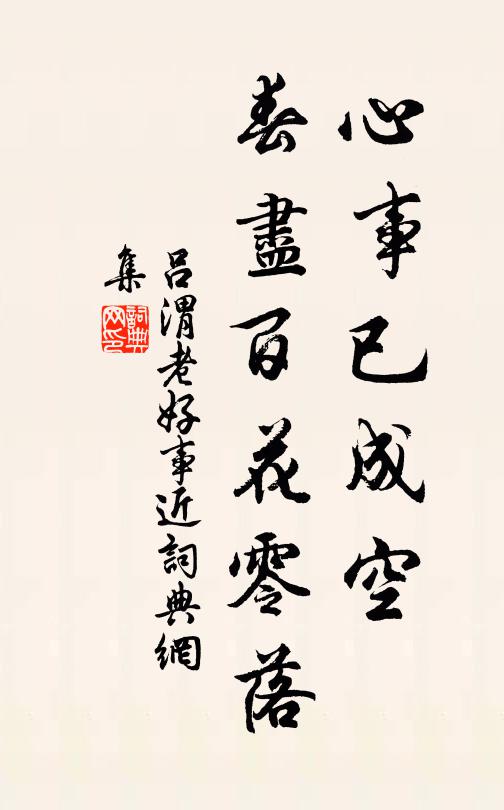 心事已成空
春盡百花零落
吕渭老好事近詞典網
集
詞典网印